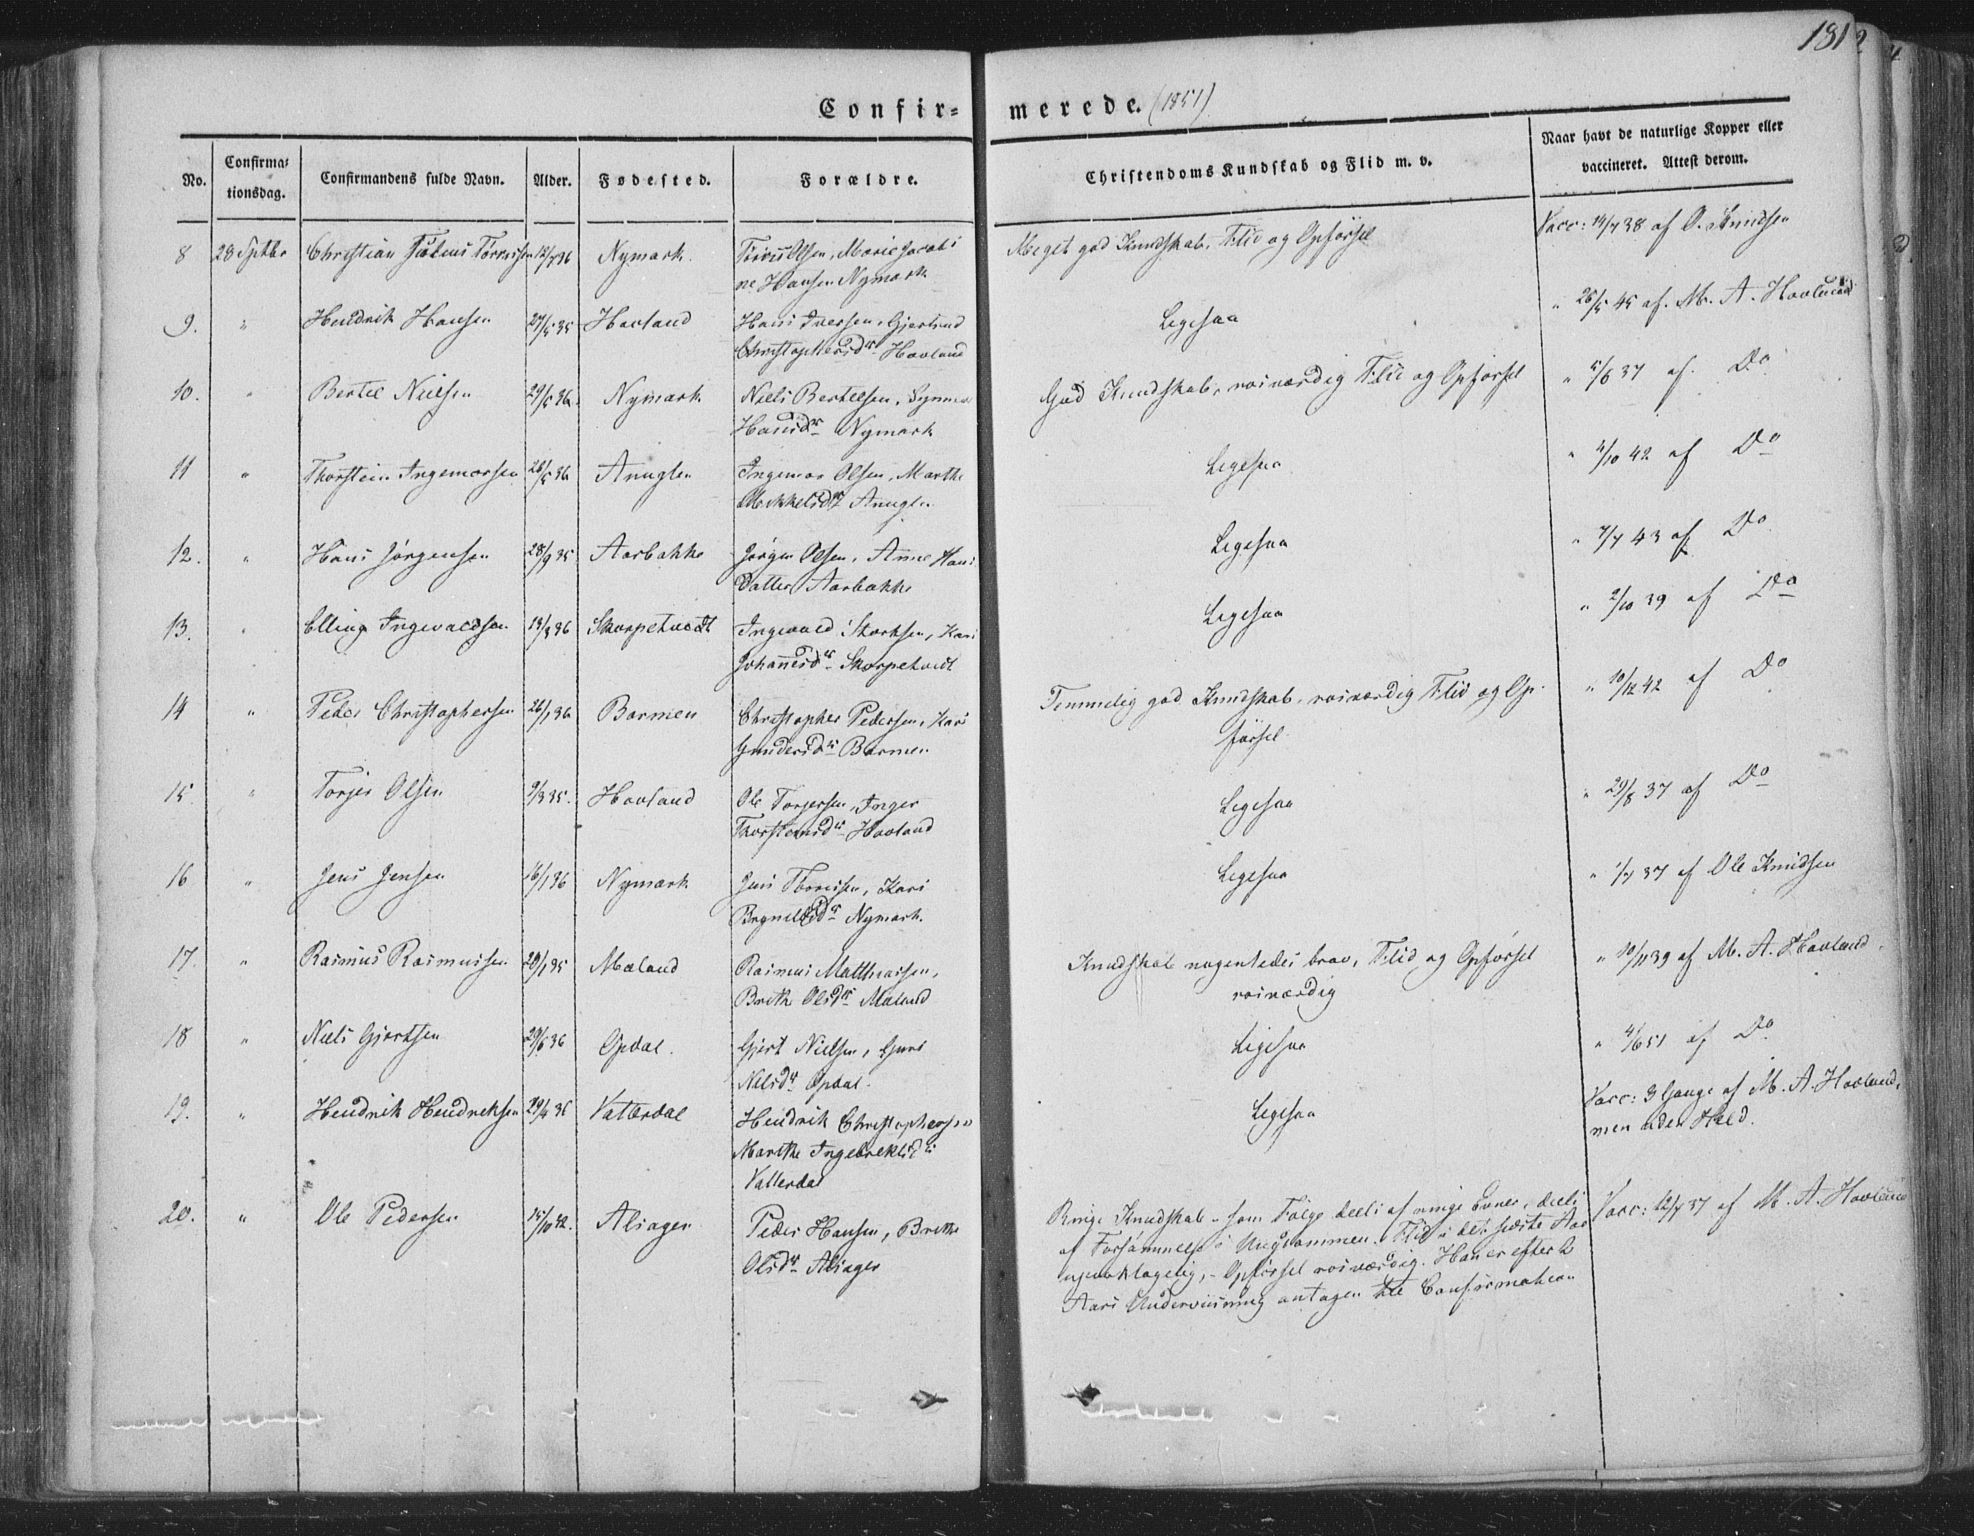 181
Confirmerede. (1851)
No. Confirmationsdag. Confirmandens fulde Navn. Alder. Fødested. Forældre. Christendoms Kundskab og Flid m. v. Naar havt de naturlige Kopper eller vaccineret. Attest derom.
8 28 Septbr Christian Julius Tørrissen 12/7 36 Nymark. Tørris Olsen, Marie Jacobi- Meget god Kundskab, Flid og Opførsel Vacc: 14/7 38 af O. Knudsen
ne Hansen Nymark
9. " Hendrik Hansen 27/5 35 Hovland Hans Iversen, Gjertrud Ligesaa " 26/5 45 af M. A. Hovland
Christophersdr Hovland
10. " Bertel Nielsen 29/5 36. Nymark Niels Bertelsen, Synneve God Kundskab, roisværdig Flid og Opførsel " 5/8 37 af Do
Hansdr Nymark
11 " Thorstein Ingemorsen 26/5 36 Anuglen Ingemor Olsen, Marthe Ligesaa " 4/10 42 af Do
Mikkelsdr Anuglen
12. " Hans Jørgensen 28/9 35. Aarbakke Jørgen Olsen, Anne Hans Ligesaa " 7/7 43 af Do
Datter Aarbakke
13. " Elling Ingevaldsen 13/3 36 Skorpetvedt Ingevald Storksen, Kari Ligesaa " 2/10 39 af Do
Johannesdr Skorpetvedt
14 " Peder Christophersen 26/1 36 Barmen Christopher Pedersen, Kari Temmelig god Kundskab, roisværdig Flid og Op- " 10/12 42 af Do
Gundersdr Barmen førsel.
15. " Torjer Olsen 9/3 35. Hovland Ole Torjersen, Inger Ligesaa " 29/8 37 af Do
Thorstensdr Hovland
16 " Jens Jensen 16/1 36 Nymark Jens Thorsen, Kari Ligesaa " 1/7 37 af Ole Knudsen
Brynildsdr Nymark.
17. " Rasmus Rasmussen 20/1 35 Mæland Rasmus Matthiassen, Kundskab nogenledes brav, Flid og Opførsel " 10/11 39 af M. A. Hovland.
Brith Olsdr Mæland roisværdig
18 " Niels Gjertsen 29/6 36 Opdal. Gjert Nielsen, Guri Ligesaa " 4/6 51 af Do
Nilsdr Opdal.
19. " Hendrik Hendriksen 29/4 36 Vatterdal Hendrik Christophersen Ligesaa Vacc: 3 Gange af M. A. Hovland,
Marthe Ingebrektsdr men uden Held.
Vatterdal
20. " Ole Pedersen 15/10 Alsager Peder Hansen, Brithe Ringe Kundskab som Følge deels af ringe Evner, deels Vacc: 12/7 37 af M. A. Hovland
Olsdr Alsager af Forsømmelse i Ungdommen. Flid i det sidste Aar
upaaklagelig, – Opførsel roisværdig. Han er efter 2
Aars Underviisning antagen til Confirmation